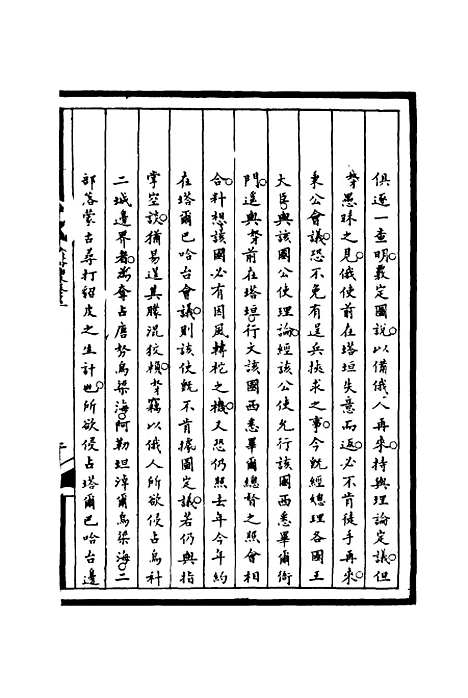 俱逐一查明擬定圖說以備俄人再來持與理論定議但
孥愚昧之見俄使前在塔垣失意而返必不肯徒手再來
秉公會議恐不免有逞兵挾求之事今旣經總理各國王
大臣與該國公使理論經該公使允行該國西悉畢爾衙
門遥與孥前在塔垣行文該國西悉畢爾總督之照會相
合料想該國必有因風轉柁之機又恐仍照去年今年約
在塔爾巴哈台會議則該使旣不肯據圖定議若仍與指
掌空談猶易逞其朦混狡賴孥竊以俄人所欲侵占烏科
二城邊界者爲奪占唐努烏梁海阿勒坦淖爾烏梁海二
部落蒙古尋打貂皮之生計也所欲侵占塔爾巴哈台邊